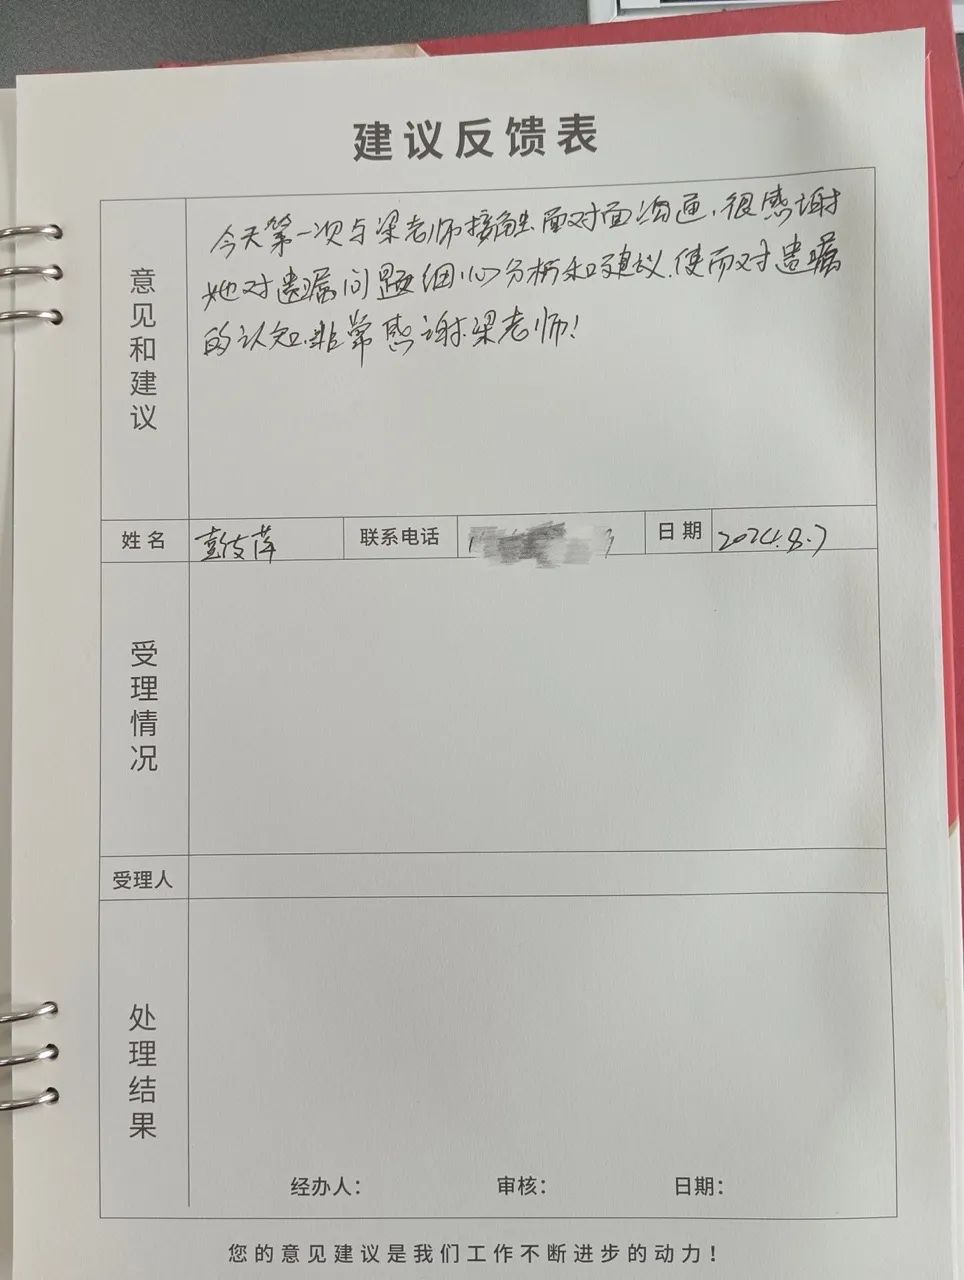 建议反馈表
意见和建议
今天第一次与梁老师接触面对面沟通,很感谢
她对遗嘱问题细心分析和建议,使而对遗嘱
的认知,非常感谢梁老师!
姓名
联系电话
日期 2024.8.7
受理情况
受理人
处理结果
经办人: 审核: 日期:
您的意见建议是我们工作不断进步的动力!